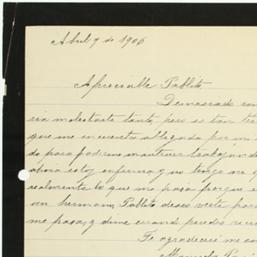 Abril 9 de 1906
Apreciable Pablito
Demasiado
molestarte tanto pero es tan
que me encuentro allegada por mi
do para podernos mantener trabajando
ahora estoy enferma y no tengo
realmente lo que me pasa porque
un hermano, Pablito deseo verte para
me pasa, y dime cuando puedes
Te agradeceré me
Manuela